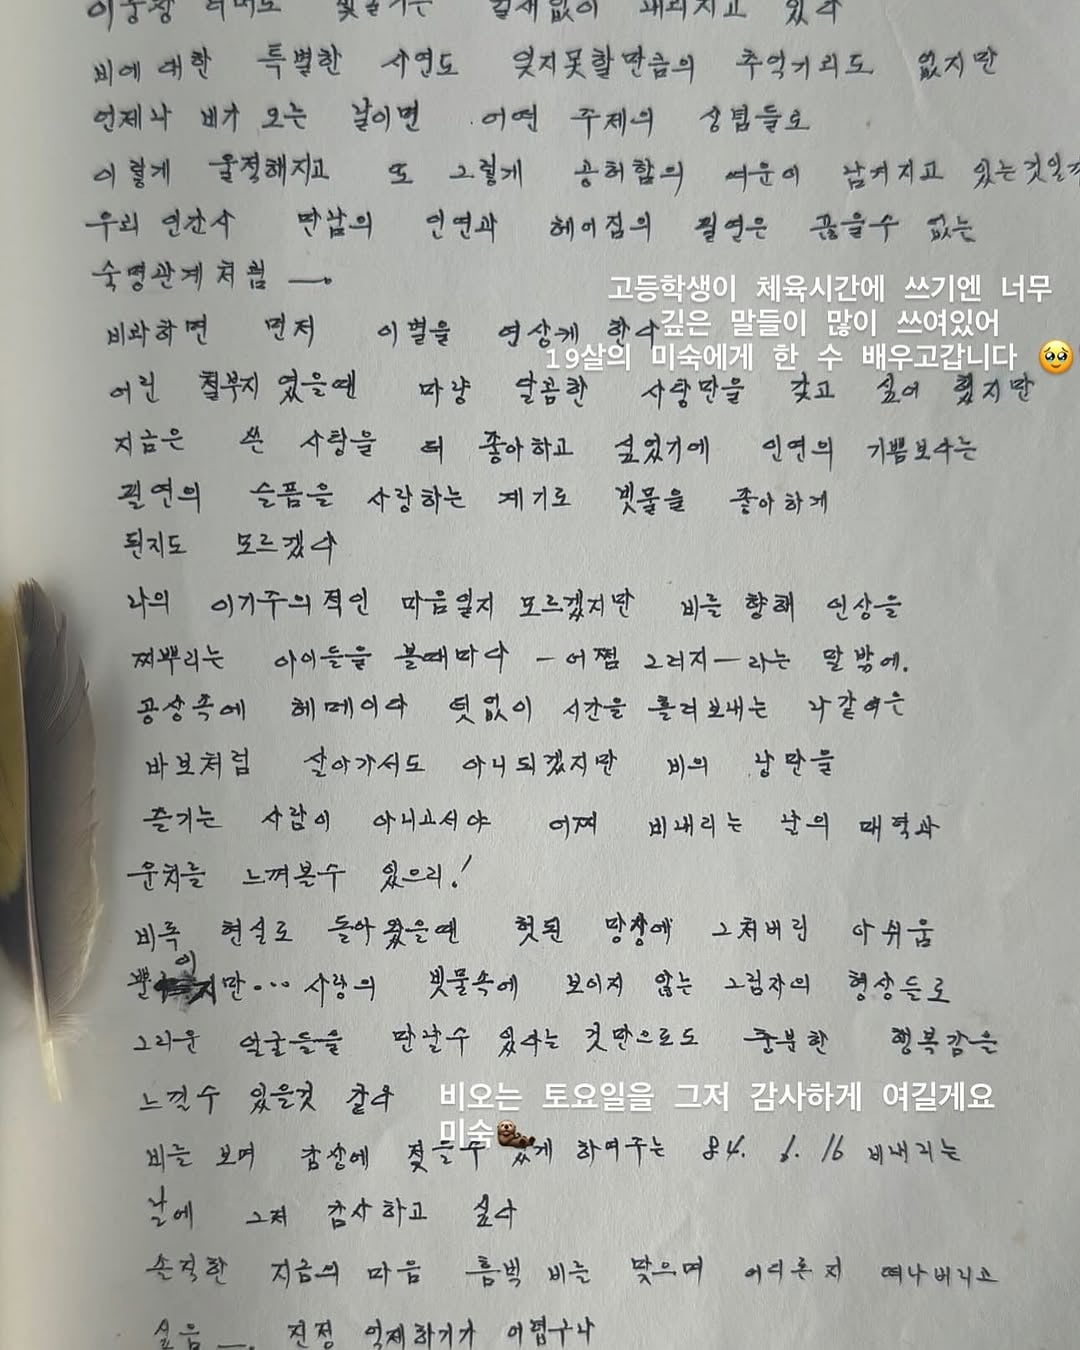 빗줄기는 쉴새없이 내려치고 있다
비에 대한 특별한 사연도 잊지못할만큼의 추억거리도 없지만
언제나 비가 오는 날이면 어떤 주제의 상념들로
이렇게 울적해지고 또 그렇게 공허함의 여운이 남겨지고 있는것일까
우리 인간사 만남의 인연과 헤어짐의 필연은 끊을수 없는
숙명관계처럼 —.
고등학생이 체육시간에 쓰기엔 너무
비라하면 먼저 이별을 연상케 한다
깊은 말들이 많이 쓰여있어
19살의 미숙에게 한 수 배우고갑니다 🥹
어린 철부지 였을땐 마냥 달콤한 사탕만을 갖고 싶어 했지만
지금은 쓴 사탕을 더 좋아하고 싶었기에 인연의 기쁨보다는
필연의 슬픔을 사랑하는 계기로 빗물을 좋아하게
된지도 모르겠다
나의 이기주의적인 마음일지 모르겠지만 비를 향해 인상을
찌뿌리는 아이들을 볼때마다 —어쩜 그러지—라는 말밖에.
공상속에 헤메이다 덧없이 시간을 흘려보내는 나같은
바보처럼 살아가서도 아니되겠지만 비의 낭만을
즐기는 사람이 아니고서야 어찌 비내리는 날의 매력과
운치를 느껴볼수 있으리!
비록 현실로 돌아왔을땐 헛된 망상에 그쳐버린 아쉬움
뿐이지만... 사랑의 빗물속에 보이지 않는 그림자의 형상들로
그리운 얼굴들을 만날수 있다는 것만으로도 충분한 행복감을
느낄수 있을것 같다
비오는 토요일을 그저 감사하게 여길게요
미숙🦦
비를 보며 감상에 젖을수 있게 하여주는 84. 6. 16 비내리는
날에 그저 감사하고 싶다
솔직한 지금의 마음 흠벅 비를 맞으며 어디론지 떠나버리고
싶음 —. 진정 억제하기가 어렵구나